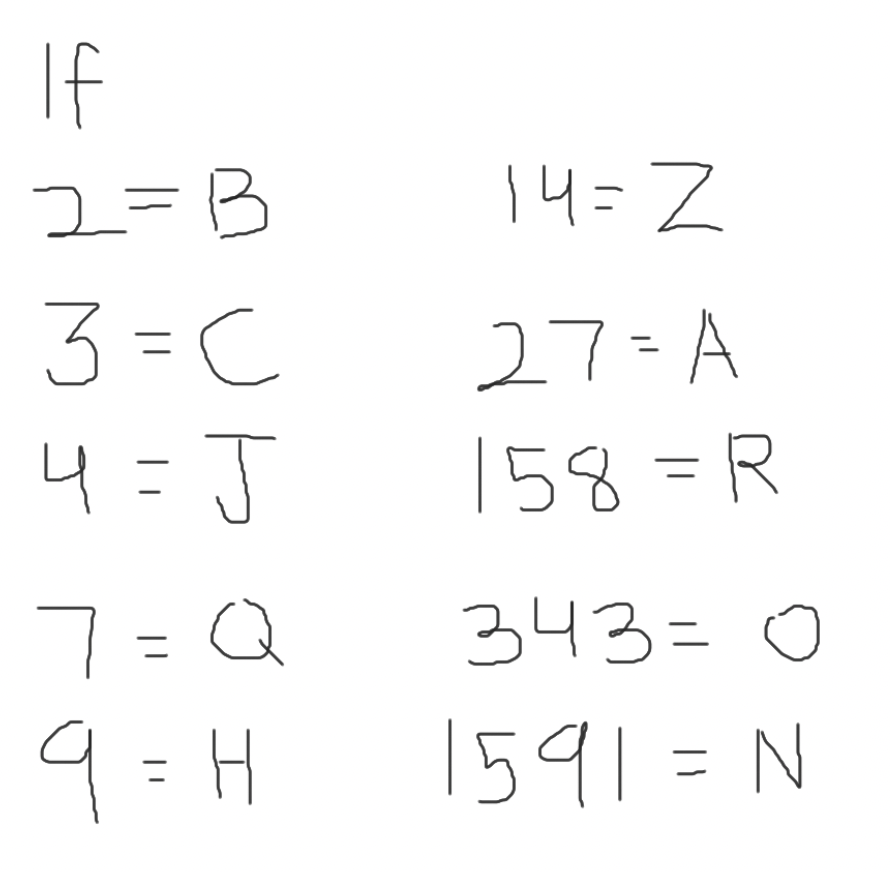 If
2 = B
14 = Z
3 = C
27 = A
4 = J
158 = R
7 = Q
343 = O
9 = H
1591 = N